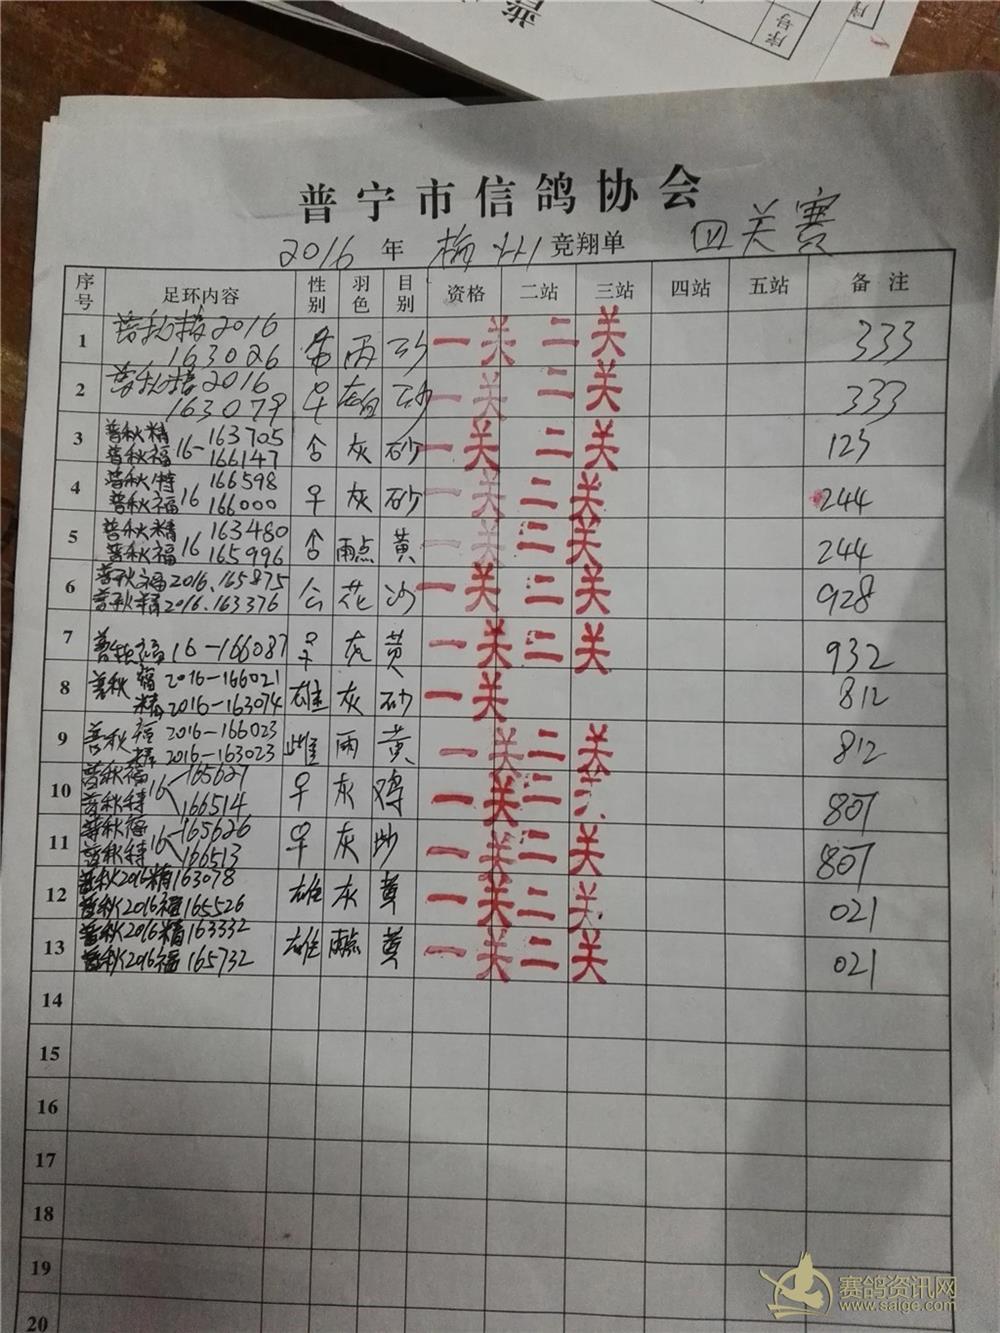 序号
普宁市信鸽协会
2016 年 梅州 竞翔单 四关赛
序号 足环内容 性别 羽色 目别 资格 二站 三站 四站 五站 备注
1 普秋 2016 163026 雨 砂 一关 二关 333
2 普秋 2016 163079 砂 一关 二关 333
3 普秋精 普秋福 16-163705 166147 灰 砂 一关 二关 123
4 普秋特 普秋福 16 166598 166000 灰 砂 一关 二关 244
5 普秋精 普秋福 16 163480 165996 雨点 黄 一关 二关 244
6 普秋福2016.165875 普秋精2016.163376 公 花 沙 一关 二关 928
7 普秋福16-166087 灰 黄 一关 二关 932
8 普秋 福2016-166021 精2016-163074 雄 灰 砂 一关 812
9 普秋 福2016-166023 2016-163023 雌 雨 黄 一关 二关 812
10 普秋福 普秋特 16 165627 166514 灰 鸡 一关 二 807
11 普秋福 普秋特 16 165626 166513 灰 一关 二关 807
12 普秋2016精163078 普秋2016福165526 雄 灰 黄 一关 二关 021
13 普秋2016精163332 普秋2016福165732 雄 雨点 黄 一关 二关 021
14
15
16
17
18
19
20
赛鸽资讯网
www.saige.com